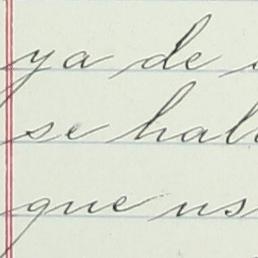 ya de
se hab
que us